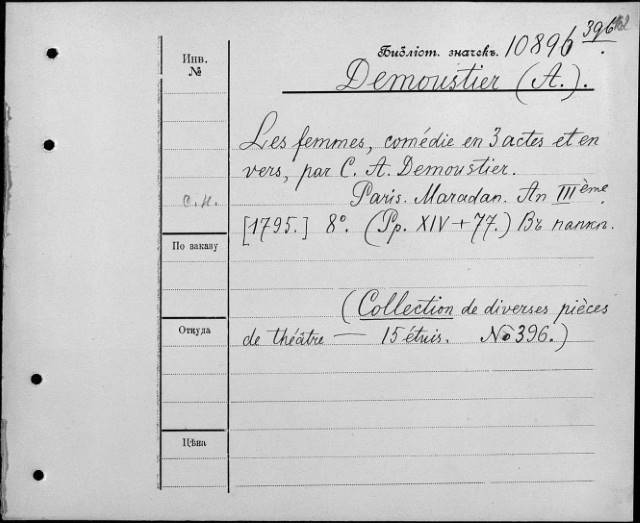 Библіот. значекъ. 10896 396
Инв.
№
Demoustier (A.).
Les femmes, comédie en 3 actes et en
vers, par C. A. Demoustier.
Paris. Maradan. An IIIème
с.н.
[1795.] 8°. (Pp. XIV + 77.) Въ папкѣ.
По заказу
(Collection de diverses pièces
Откуда
de théâtre — 15 étuis. № 396.)
Цѣна